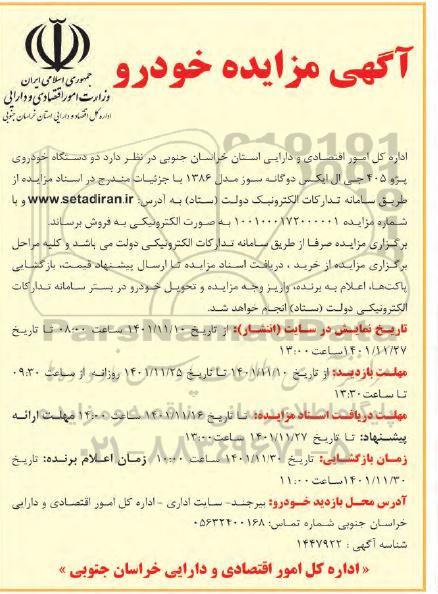 آگهی مزایده خودرو
جمهوری اسلامی ایران
وزارت امور اقتصادی و دارایی
اداره کل امور اقتصادی و دارایی استان خراسان جنوبی
اداره کل امور اقتصادی و دارایی استان خراسان جنوبی در نظر دارد دو دستگاه خودروی
پژو ۴۰۵ جی ال ایکس دوگانه سوز مدل ۱۳۸۶ با جزئیات مندرج در اسناد مزایده از
طریق سامانه تدارکات الکترونیک دولت (ستاد) به آدرس: www.setadiran.ir و با
شماره مزایده ۱۰۰۱۰۰۰۱۷۲۰۰۰۰۰۱ به صورت الکترونیکی به فروش برساند.
برگزاری مزایده صرفا از طریق سامانه تدارکات الکترونیکی دولت می باشد و کلیه مراحل
برگزاری مزایده از خرید ، دریافت اسناد مزایده تا ارسال پیشنهاد قیمت، بازگشایی
پاکت‌ها، اعلام به برنده، واریز وجه مزایده و تحویل خودرو در بستر سامانه تدارکات
الکترونیکی دولت (ستاد) انجام خواهد شد.
تاریخ نمایش در سایت (انتشار): از تاریخ ۱۴۰۱/۱۱/۱۰ ساعت ۰۸:۰۰ تا تاریخ
۱۴۰۱/۱۱/۲۷ ساعت ۱۳:۰۰
مهلت بازدید: از تاریخ ۱۴۰۱/۱۱/۱۰ تا تاریخ ۱۴۰۱/۱۱/۲۵ روزانه از ساعت ۰۹:۳۰
تا ساعت ۱۳:۳۰
مهلت دریافت اسناد مزایده: تا تاریخ ۱۴۰۱/۱۱/۱۶ ساعت ۱۴:۰۰ مهلت ارائه
پیشنهاد: تا تاریخ ۱۴۰۱/۱۱/۲۷ ساعت ۱۳:۰۰
زمان بازگشایی: تاریخ ۱۴۰۱/۱۱/۳۰ ساعت ۱۰:۰۰ زمان اعلام برنده: تاریخ
۱۴۰۱/۱۱/۳۰ ساعت ۱۱:۰۰
آدرس محل بازدید خودرو: بیرجند- سایت اداری - اداره کل امور اقتصادی و دارایی
خراسان جنوبی شماره تماس: ۰۵۶۳۲۴۰۰۱۶۸
شناسه آگهی : ۱۴۴۷۹۲۲
« اداره کل امور اقتصادی و دارایی خراسان جنوبی »